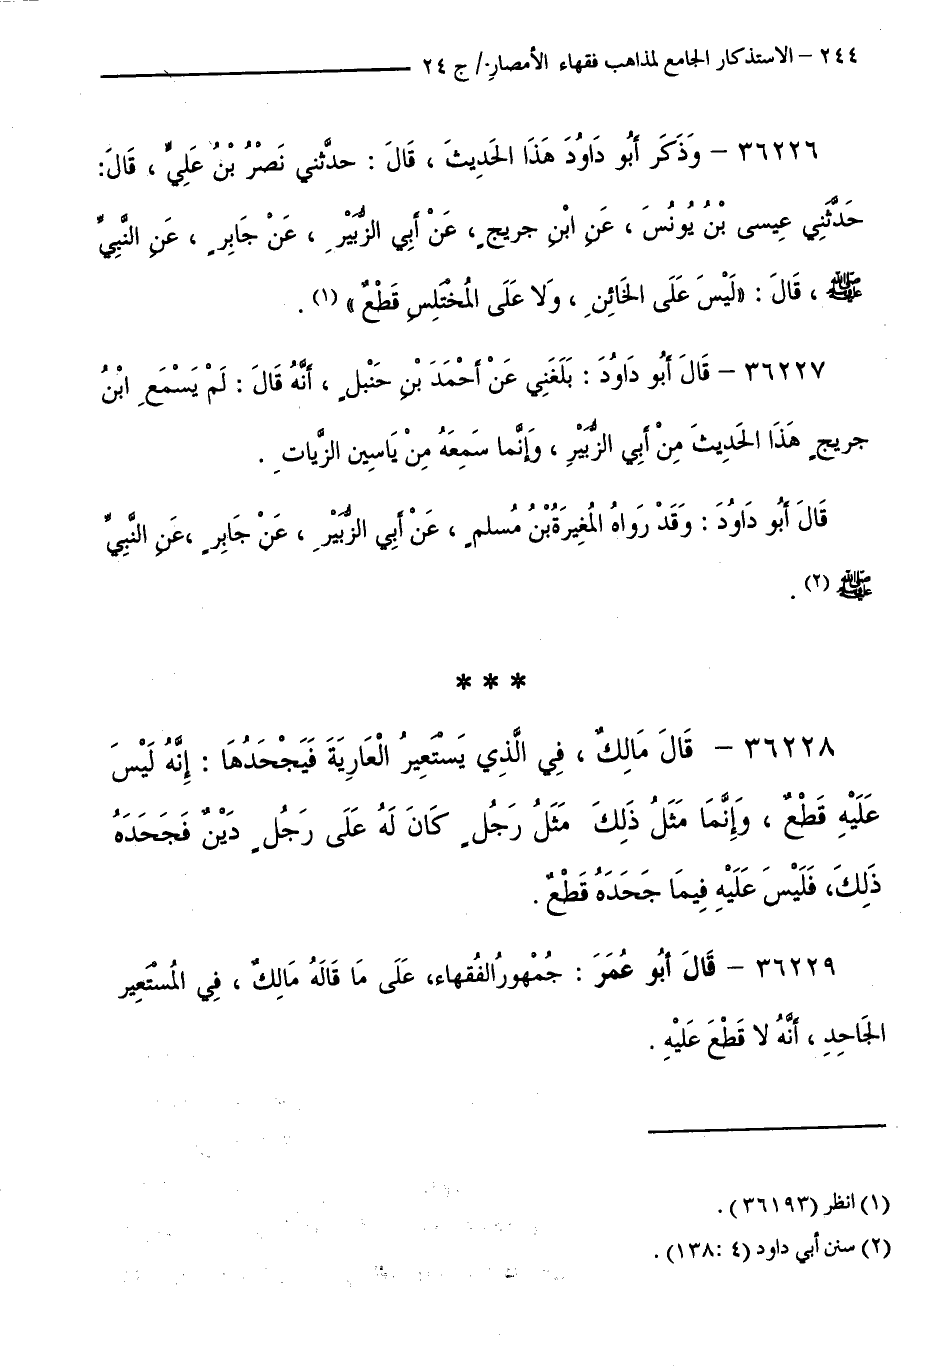 ٢٤٤ – الاستذكار الجامع لمذاهب فقهاء الأمصار / ج ٢٤
٣٦٢٢٦ – وَذَكَر أَبُو دَاوُدَ هَذَا الحَدِيثَ ، قَالَ : حدثَّني نَصْرُ بْنُ عَلِيٍّ ، قَالَ:
حَدَّثَنِي عِيسى بْنُ يُونُسَ ، عَنِ ابْنِ جريجٍ ، عَنْ أَبِي الزُّبَيْرِ ، عَنْ جَابِرٍ ، عَنِ النَّبِيِّ
ﷺ ، قَالَ : «لَيْسَ عَلَى الخَائِنِ ، وَلا عَلَى المُخْتَلِسِ قَطْعٌ» (١) .
٣٦٢٢٧ – قَالَ أَبُو دَاوُدَ : بَلَغَنِي عَنْ أَحْمَدَ بْنِ حَنْبَلٍ ، أَنَّهُ قَالَ : لَمْ يَسْمَعِ ابْنُ
جريجٍ هَذَا الحَدِيثَ مِنْ أَبِي الزُّبَيْرِ ، وَإِنَّما سَمِعَهُ مِنْ يَاسِين الزَّيات ِ .
قَالَ أَبُو دَاوُدَ : وَقَدْ رَوَاهُ المُغِيرَةُبْنُ مُسلمٍ ، عَنْ أَبِي الزُّبَيْرِ ، عَنْ جَابِرٍ ،عَنِ النَّبِيِّ
ﷺ (٢) .
* * *
٣٦٢٢٨ – قَالَ مَالِكٌ ، فِي الَّذِي يَسْتَعِيرُ الْعَارِيَةَ فَيَجْحَدُهَا : إِنَّهُ لَيْسَ
عَلَيْهِ قَطْعٌ ، وَإِنَّمَا مَثَلُ ذَلِكَ مَثَلُ رَجُلٍ كَانَ لَهُ عَلَى رَجُلٍ دَيْنٌ فَجَحَدَهُ
ذَلِكَ، فَلَيْسَ عَلَيْهِ فِيمَا جَحَدَهُ قَطْعٌ .
٣٦٢٢٩ – قَالَ أَبُو عُمَرَ : جُمْهورُالفُقهاء، عَلَى مَا قَالَهُ مَالِكٌ ، فِي المُسْتَعِير
الجَاحِدِ ، أَنَّهُ لا قَطْعَ عَلَيْهِ .
(١) انظر (٣٦١٩٣) .
(٢) سنن أبي داود (٤ :١٣٨) .